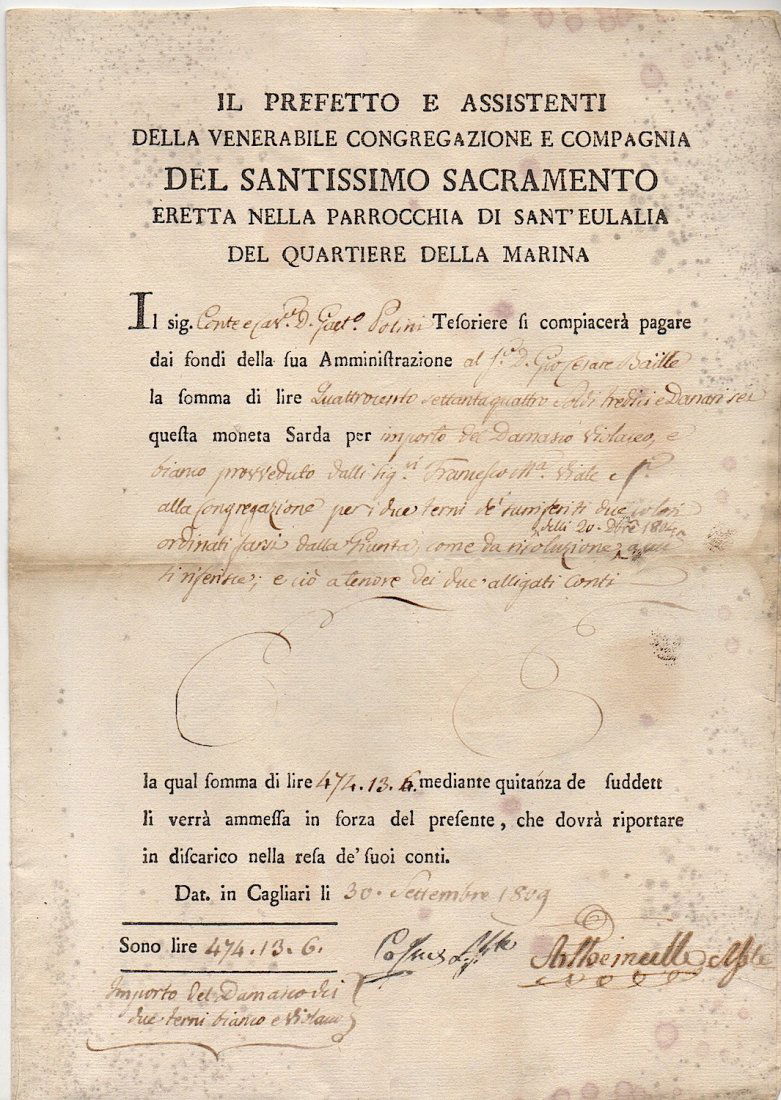 IL PREFETTO E ASSISTENTI
DELLA VENERABILE CONGREGAZIONE E COMPAGNIA
DEL SANTISSIMO SACRAMENTO
ERETTA NELLA PARROCCHIA DI SANT'EULALIA
DEL QUARTIERE DELLA MARINA
Il sig. Conte e Cav.e D. Gaet.o Polini Teſoriere ſi compiacerà pagare
dai fondi della ſua Amminiſtrazione al S.r D. Gio Cesare Baille
la ſomma di lire Quattrocento settantaquattro Soldi tredici e Danari sei
queſta moneta Sarda per importo del Damasco violaceo, e
bianco provveduto dalli Sig.ri Francesco M.a Viale e
alla Congregazione per i due terni de' surriferiti due colori
delli 20. Dbre 1804
ordinati farsi dalla Giunta, come da risoluzione, a cui
si riferisce; e ciò a tenore dei due alligati Conti
la qual ſomma di lire 474.13.6. mediante quitanza de ſuddett
li verrà ammeſſa in forza del preſente, che dovrà riportare
in diſcarico nella reſa de' ſuoi conti.
Dat. in Cagliari li 30. Settembre 1809
Sono lire 474.13.6.
Importo del Damasco dei
due terni bianco e violaceo